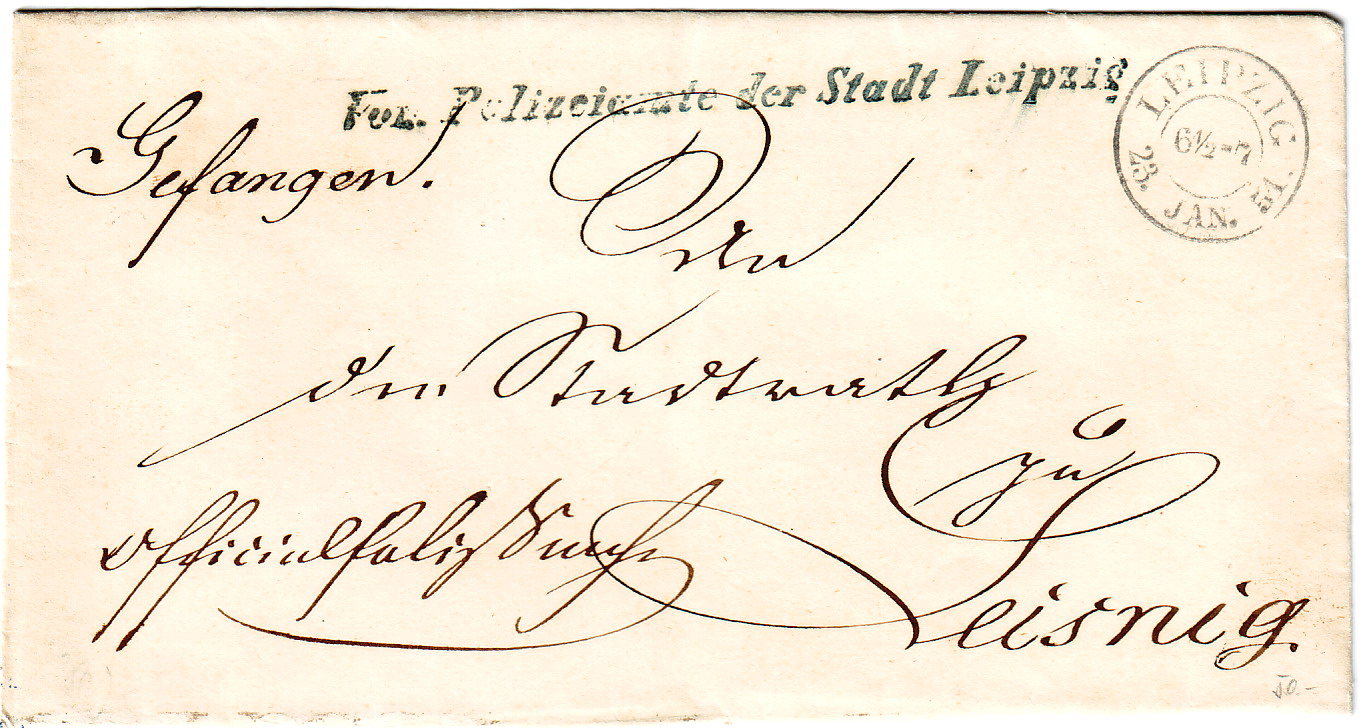 Vom Polizeiamte der Stadt Leipzig
LEIPZIG
6½-7
23. JAN. 51.
Gefangen.
An
den Stadtrath
zu
Leisnig.
50.-